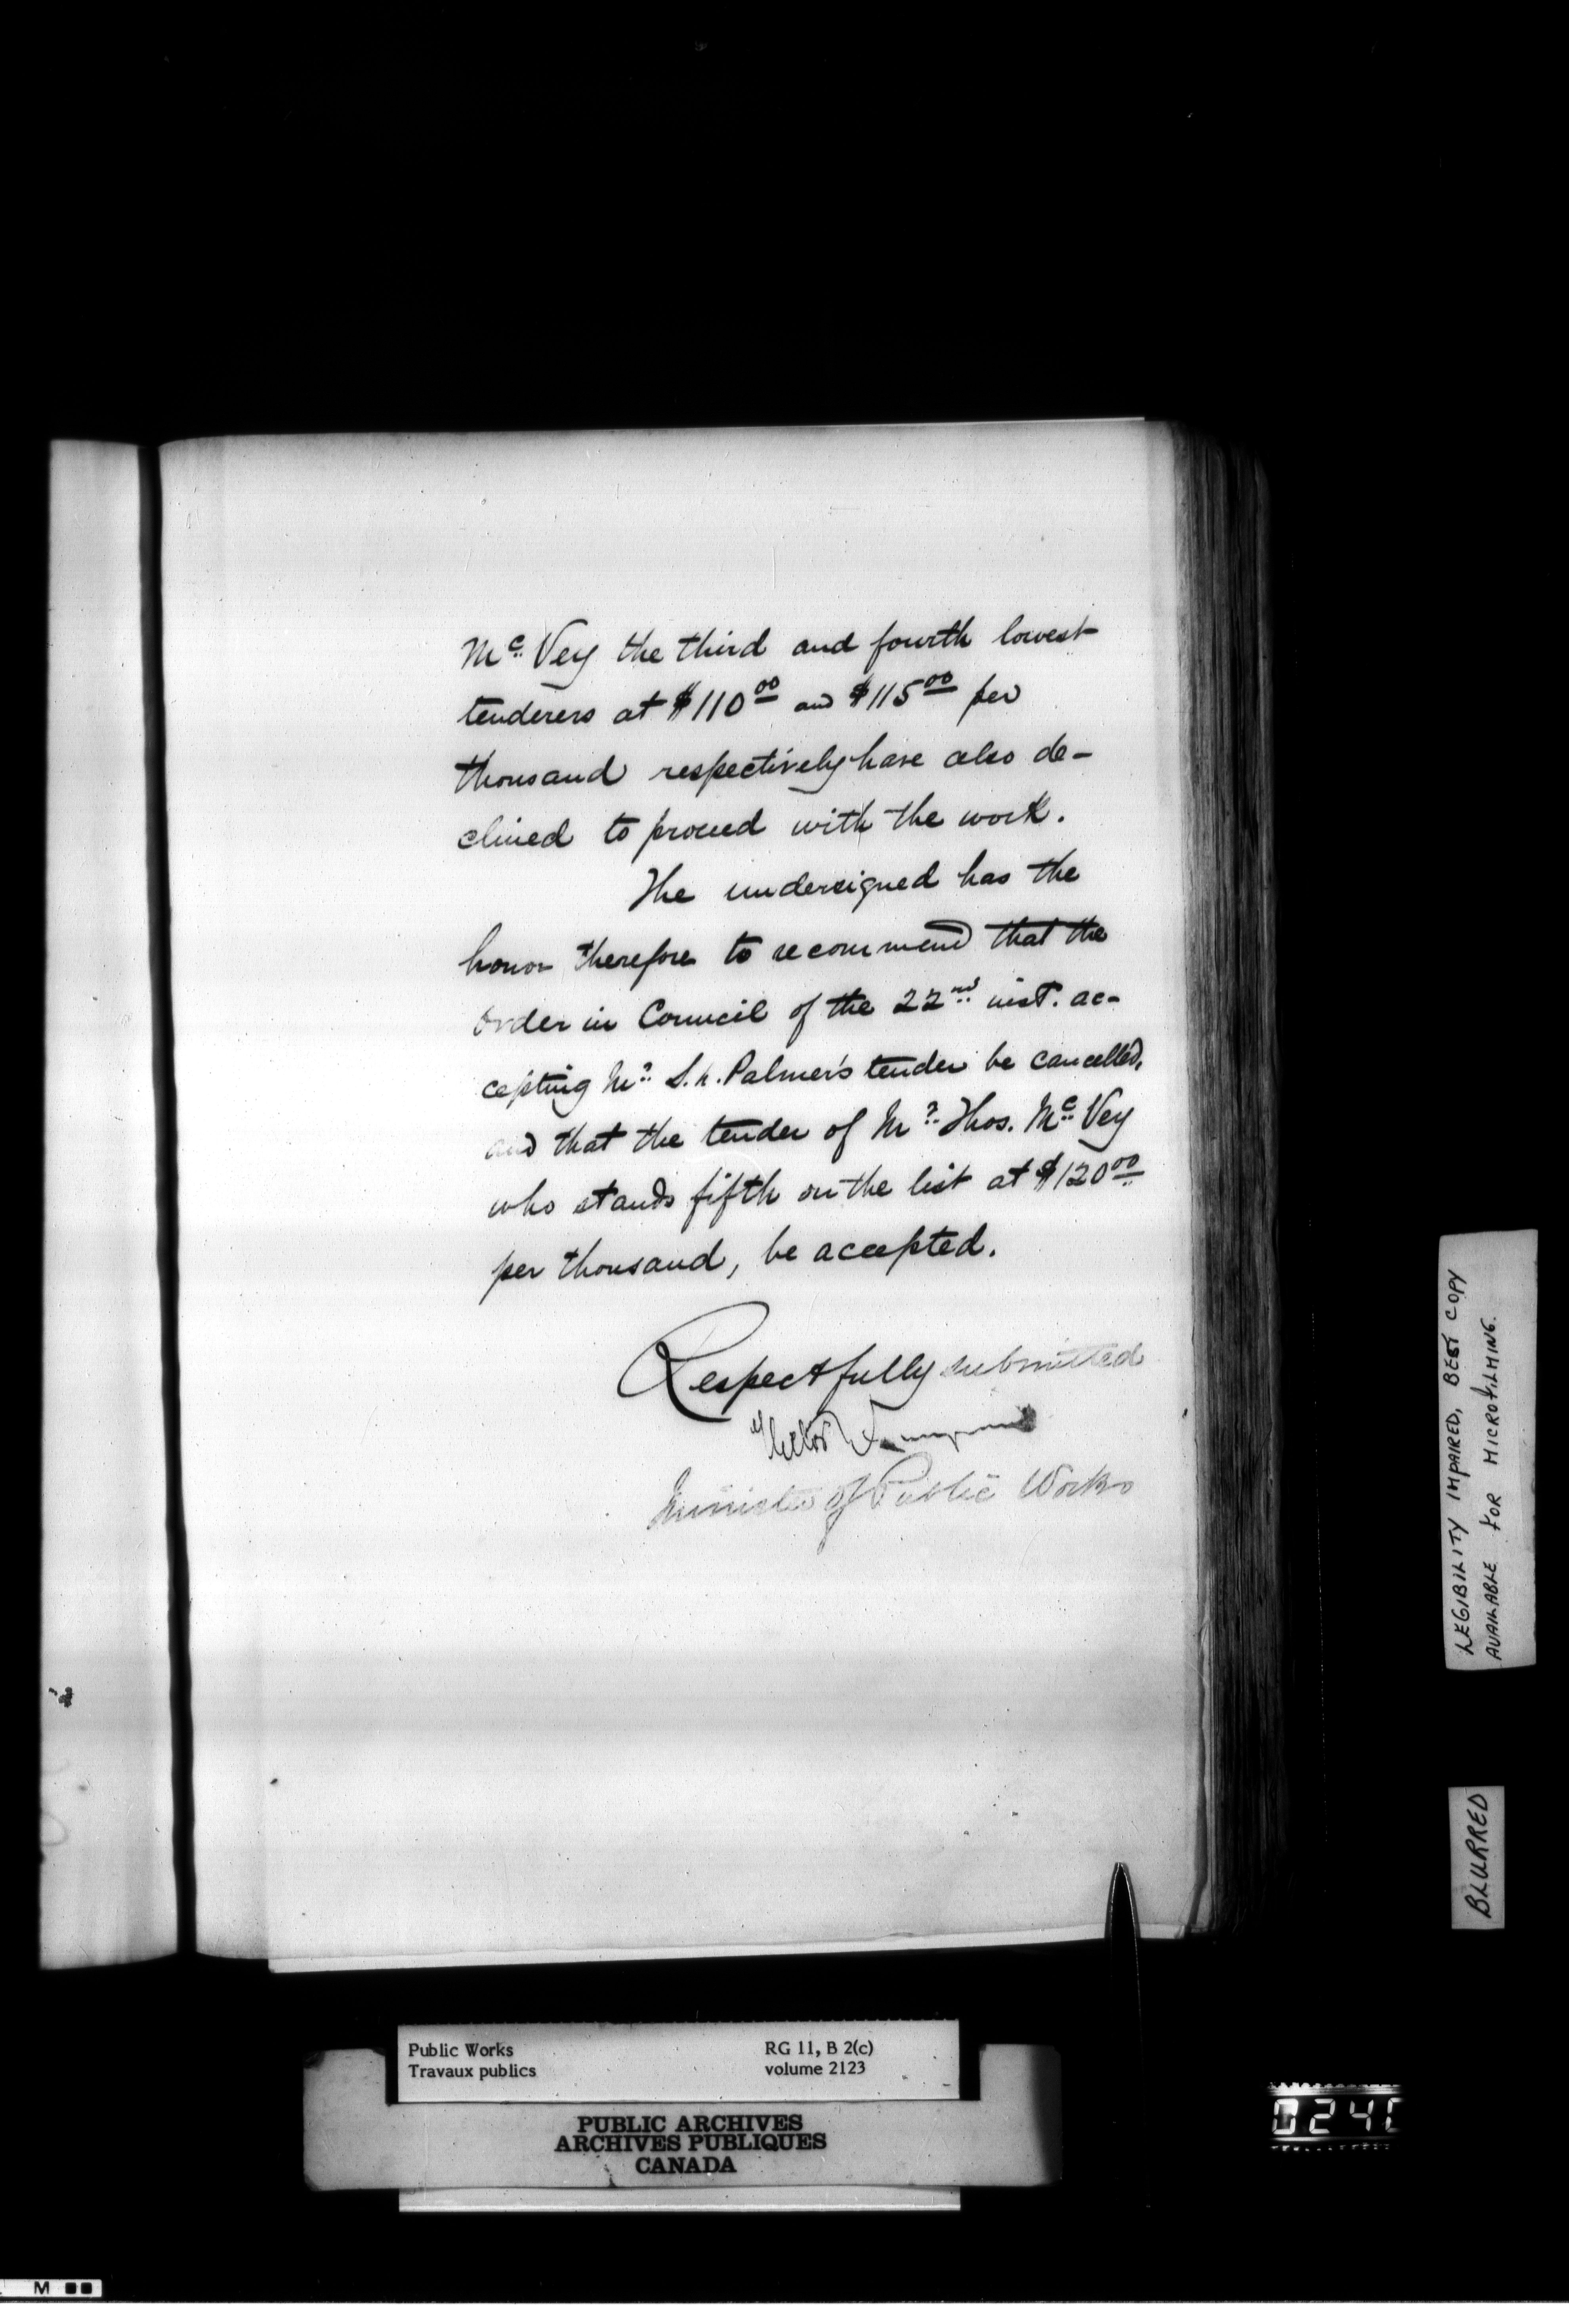 Mc Vey the third and fourth lowest
tenderers at $110 00 and $115 00 per
thousand respectively have also de-
clined to proceed with the work.
The undersigned has the
honor therefore to recommend that the
order in Council of the 22nd inst. ac-
cepting Mr. Palmer's tender be cancelled,
and that the tender of Mr. Thos. Mc Vey
who stands fifth on the list at $120 00
per thousand, be accepted.
Respectfully submitted
Minister of Public Works
LEGIBILITY IMPAIRED, BEST COPY
AVAILABLE FOR MICROFILMING.
BLURRED
Public Works
Travaux publics
RG 11, B 2(c)
volume 2123
PUBLIC ARCHIVES
ARCHIVES PUBLIQUES
CANADA
M